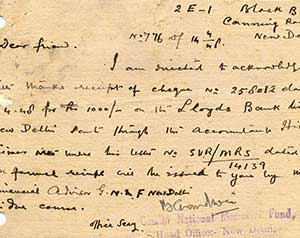 2 E-1 Black B
Canning R
No. 776 of 14/4/48 New De
Dear friend.
I am directed to acknowledg
receipt of cheque No 258012 da
4.48 for 1000/- on the Lloyds Bank
New Delhi sent through the Accountants
his letter No SVR/MRS dated
14139
formal receipt will be issued to you by
Financial Advisor G.N.M.F New Delhi
due course.
Office Secy
Gandhi National Memorial Fund,
Head Office:- New Delhi.